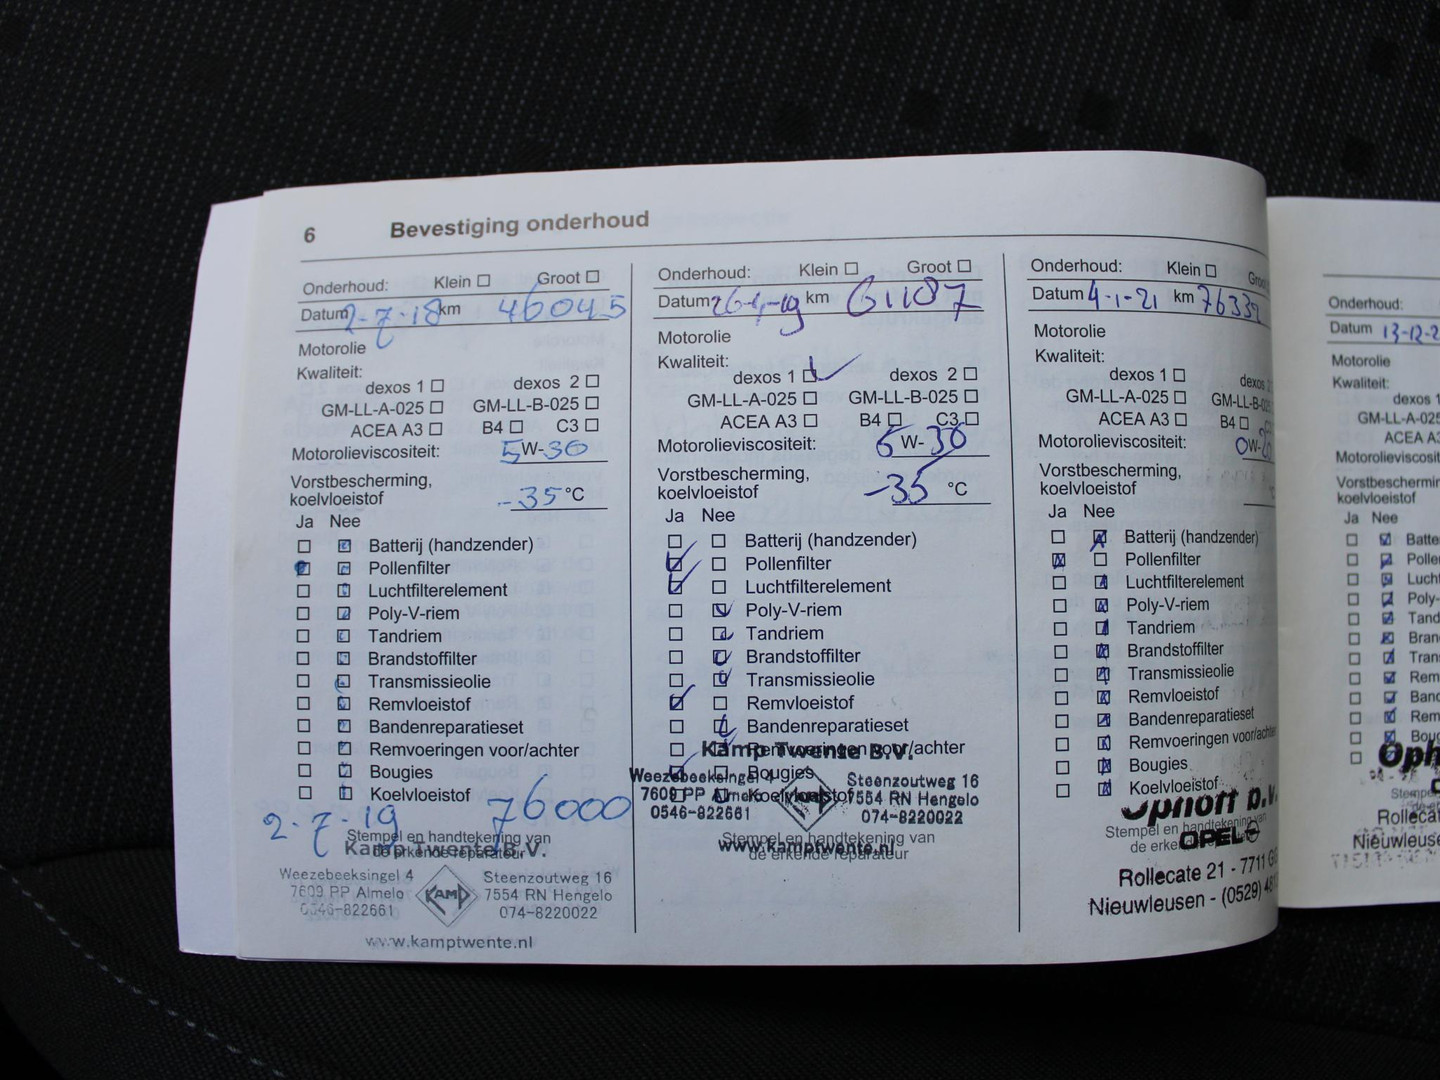 6 Bevestiging onderhoud
Onderhoud: Klein Groot
Datum 2-7-18 km 46045
Motorolie
Kwaliteit:
dexos 1 dexos 2
GM-LL-A-025 GM-LL-B-025
ACEA A3 B4 C3
Motorolieviscositeit: 5W-30
Vorstbescherming,
koelvloeistof -35 °C
Ja Nee
Batterij (handzender)
Pollenfilter
Luchtfilterelement
Poly-V-riem
Tandriem
Brandstoffilter
Transmissieolie
Remvloeistof
Bandenreparatieset
Remvoeringen voor/achter
Bougies
Koelvloeistof
2-7-19 76000
Stempel en handtekening van
de erkende reparateur
Kamp Twente B.V.
Weezebeeksingel 4 Steenzoutweg 16
7609 PP Almelo KAMP 7554 RN Hengelo
0546-822661 074-8220022
www.kamptwente.nl
Onderhoud: Klein Groot
Datum 26-4-19 km 61187
Motorolie
Kwaliteit:
dexos 1 dexos 2
GM-LL-A-025 GM-LL-B-025
ACEA A3 B4 C3
Motorolieviscositeit: 5W-30
Vorstbescherming,
koelvloeistof -35 °C
Ja Nee
Batterij (handzender)
Pollenfilter
Luchtfilterelement
Poly-V-riem
Tandriem
Brandstoffilter
Transmissieolie
Remvloeistof
Bandenreparatieset
Remvoeringen voor/achter
Bougies
Koelvloeistof
Kamp Twente B.V.
Weezebeeksingel 4 Steenzoutweg 16
7609 PP Almelo KAMP 7554 RN Hengelo
0546-822661 074-8220022
Stempel en handtekening van
de erkende reparateur
www.kamptwente.nl
Onderhoud: Klein Groo
Datum 4-1-21 km 76332
Motorolie
Kwaliteit:
dexos 1 dexos 2
GM-LL-A-025 GM-LL-B-025
ACEA A3 B4
Motorolieviscositeit: 0W-20
Vorstbescherming,
koelvloeistof °C
Ja Nee
Batterij (handzender)
Pollenfilter
Luchtfilterelement
Poly-V-riem
Tandriem
Brandstoffilter
Transmissieolie
Remvloeistof
Bandenreparatieset
Remvoeringen voor/achter
Bougies
Koelvloeistof
Stempel en handtekening van
de erkende
OPEL
Rollecate 21 - 7711 G
Nieuwleusen - (0529) 48
Onderhoud:
Datum 13-12-2
Motorolie
Kwaliteit:
dexos 1
GM-LL-A-025
ACEA A3
Motorolieviscosit
Vorstbescherming
koelvloeistof
Ja Nee
Batte
Pollen
Lucht
Poly-
Tand
Bran
Tran
Rem
Band
Rem
Boug
Koe
Oph
Stempe
Rolleca
Nieuwleuse